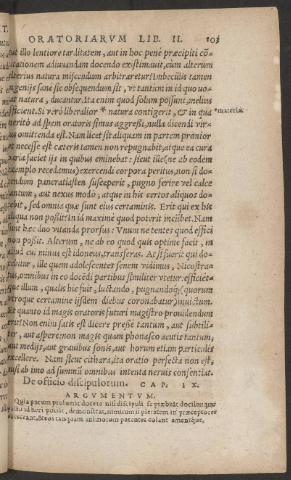 ORATORIARVM LIB. II. 103
aut illo lentiore tarditatem, aut in hoc penè præcipiti cō-
citationem adiuuandam docendo existimauit, cum alterum
alterius natura miscendum arbitraretur. Imbecillis tamen
ingenijs sanè sic obsequendum sit, vt tantum in id quo uo-
cat natura, ducantur. Ita enim quod solum possunt, melius
efficient. Si verò liberalior * natura contigerit, & in qua
materia
meritò ad spem oratoris simus aggressi, nulla dicendi vir-
tus omittenda est. Nam licet sit aliquam in partem pronior
vt necesse est cæteris tamen non repugnabit, atque ea cura
paria faciet ijs in quibus eminebat: sicut ille (ne ab eodem
exemplo recedamus) exercendi corpora peritus, non si do-
cendum pancratiasten susceperit, pugno ferire vel calce
tantum, aut nexus modo, atque in his certos aliquos do-
cebit, sed omnia quæ sunt eius certaminis. Erit qui ex his
aliqua non possit: in id maximè quod poterit incũbet. Nam
sunt hæc duo vitanda prorsus: Vnum ne tentes quod effici
non possit. Alterum, ne ab eo quod quis optimè facit, in
aliud cui minus est idoneus, transferas. At si fuerit qui do-
cebitur, ille quem adolescentes senem vidimus, Nicostra-
tus, omnibus in eo docẽdi partibus similiter vtetur, efficiet-
que illum, qualis hic fuit, luctando, pugnandoq́; (quorum
vtroque certamine iisdem diebus coronabatur) inuictum.
Et quanto id magis oratoris futuri magistro prouidendum
erit? Non enim satis est dicere pressè tantum, aut subtili-
ter, aut asperè: non magis quam phonasco acutis tantum,
aut medijs, aut grauibus sonis, aut horum etiam particulis
excellere. Nam sicut cithara, ita oratio perfecta non est,
nisi ab imo ad summũ omnibus intenta neruis consentiat.
De officio discipulorum. CAP. IX.
ARGVMENTVM.